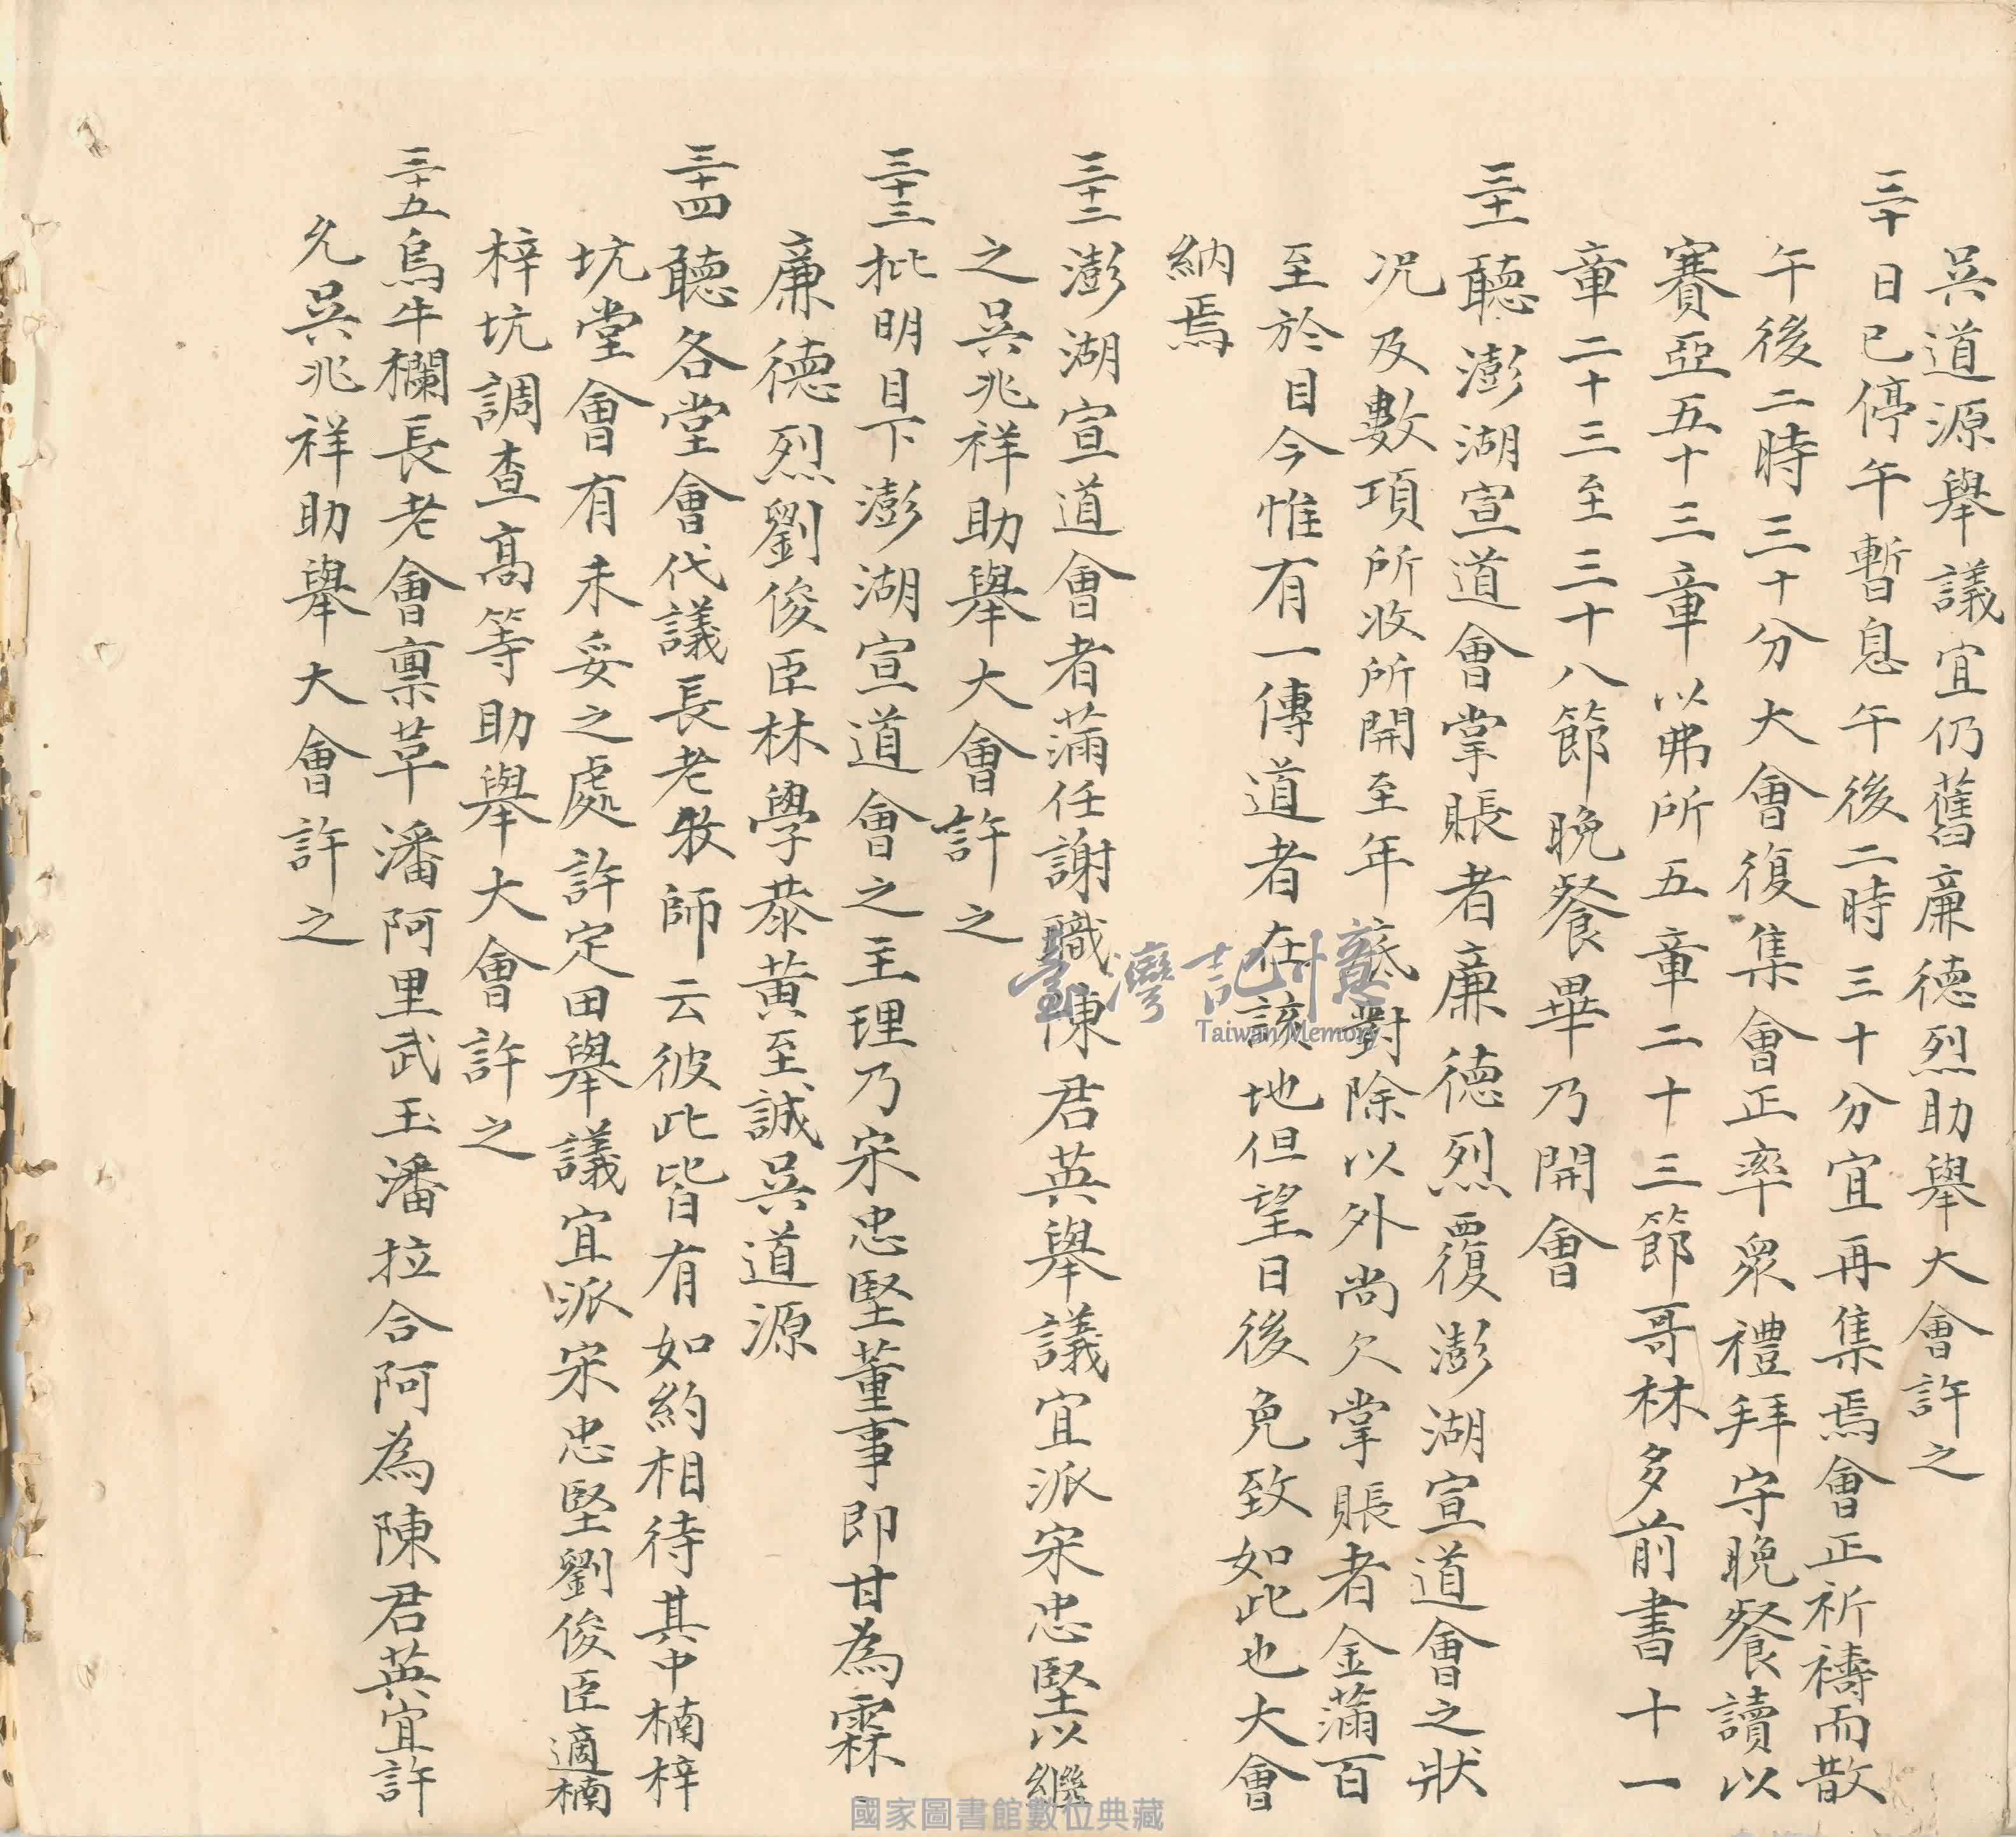 吳道源舉議宜仍舊廉德烈助舉大會許之
三十 日已停午暫息午後二時三十分宜再集焉會正祈禱而散
午後二時三十分大會復集會正率眾禮拜守晚餐讀以
賽亞五十三章以弗所五章二十三節哥林多前書十一
章二十三至三十八節晚餐畢乃開會
三十一 聽澎湖宣道會掌賬者廉德烈覆澎湖宣道會之狀
况及數項所收所開至年底對除以外尚欠掌賬者金蒲百
至於目今惟有一傳道者在該地但望日後免致如此也大會
納焉
三十二 澎湖宣道會者蒲任謝職陳君英舉議宜派宋忠堅以繼
之吳兆祥助舉大會許之
三十三 批明目下澎湖宣道會之主理乃宋忠堅董事即甘為霖
廉德烈劉俊臣林學恭黃至誠吳道源
三十四 聽各堂會代議長老牧師云彼此皆有如約相待其中楠梓
坑堂會有未妥之處許定田舉議宜派宋忠堅劉俊臣適楠
梓坑調查高等助舉大會許之
三十五 烏牛欄長老會稟草潘阿里武玉潘拉合阿為陳君英宜許
允吳兆祥助舉大會許之
臺灣記憶
Taiwan Memory
國家圖書館數位典藏